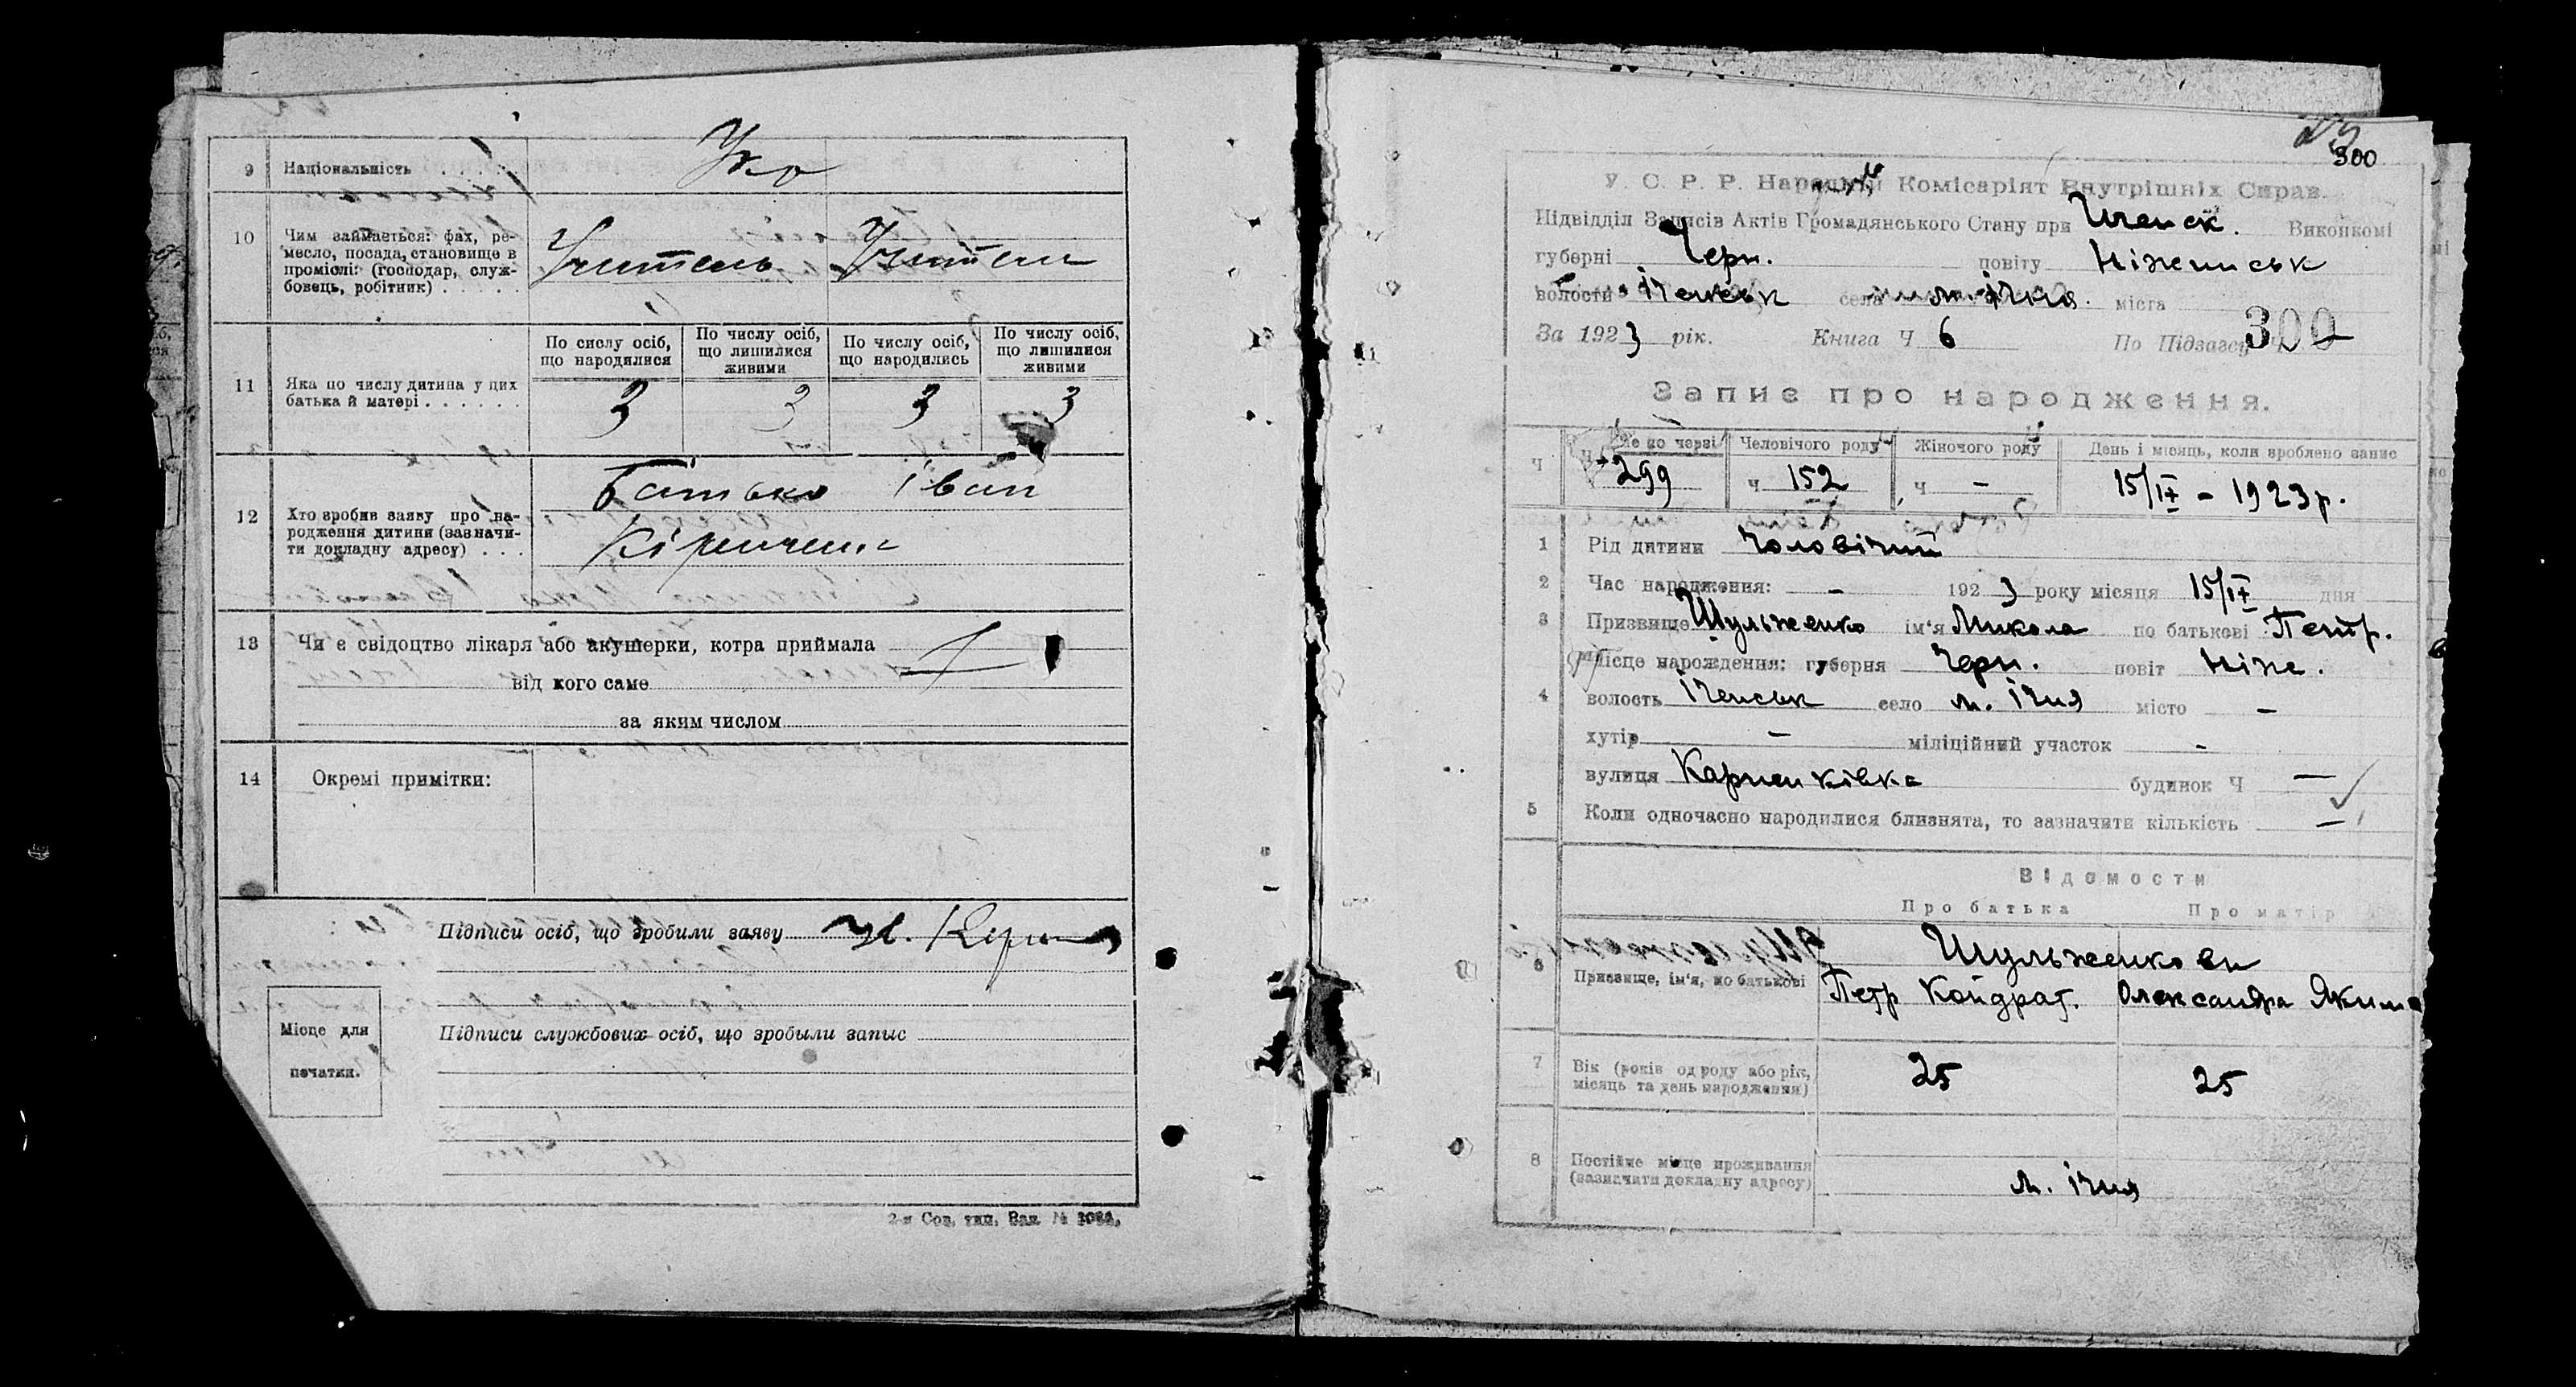 9 Національність . . . . . Укр
10 Чим займається: фах, ре-
месло, посада, становище в
проміслі: (господар, служ-
бовець, робітник) . . . . .
Учитель Учитель
По сислу осіб, що народилися
По числу осіб, що лишилися живими
По числу осіб, що народились
По числу осіб, що лишилися живими
11 Яка по числу дитина у цих
батька й матері . . . . . .
3 3 3 3
12 Хто зробив заяву про на-
родження дитини (зазначи-
ти докладну адресу) . . .
Батько Іван
13 Чи є свідоцтво лікаря або акушерки, котра приймала
від кого саме
за яким числом
14 Окремі примітки:
Підписи осіб, що зробили заяву
Місце для
печатки.
Підписи службових осіб, що зробыли запыс
2-я Сов. тип. Зак. №
300
У. С. Р. Р. Народній Комісаріят Внутрішніх Справ.
Підвідділ Записів Актів Громадянського Стану при Иченск. Виконкомі
губерні Черн. повіту Ніженськ
волости Іченськ села м. Ічня. місга
За 1923 рік. Книга Ч 6 По Підзагсу Ч 300
Запис про народження.
Ч Не по черзі Человічого роду Жіночого роду День і місяць, коли вроблено запис
Ч 299 ч 152 ч — 15/IX - 1923 р.
1 Рід дитини чоловічий
2 Час народження: — 1923 року місяця 15/IX дня
3 Призвище Шульженко ім'я Микола по батькові Петр.
Місце нарождення: губерня Черн. повіт Ніже.
4 волость Іченськ село м. Ічня місто —
хутір — міліційний участок -
вулиця будинок Ч —
5 Коли одночасно народилися близнята, то зазначити кількість —
Відомости
Про батька Про матір
6 Призвище, ім'я, по батькові
Шульженкови
Петр Кондрат. Олександра Якимо
7 Вік (років од роду або рік,
місяць та день народження)
25 25
8 Постійне місце проживання
(зазначити докладну адресу)
м. Ічня